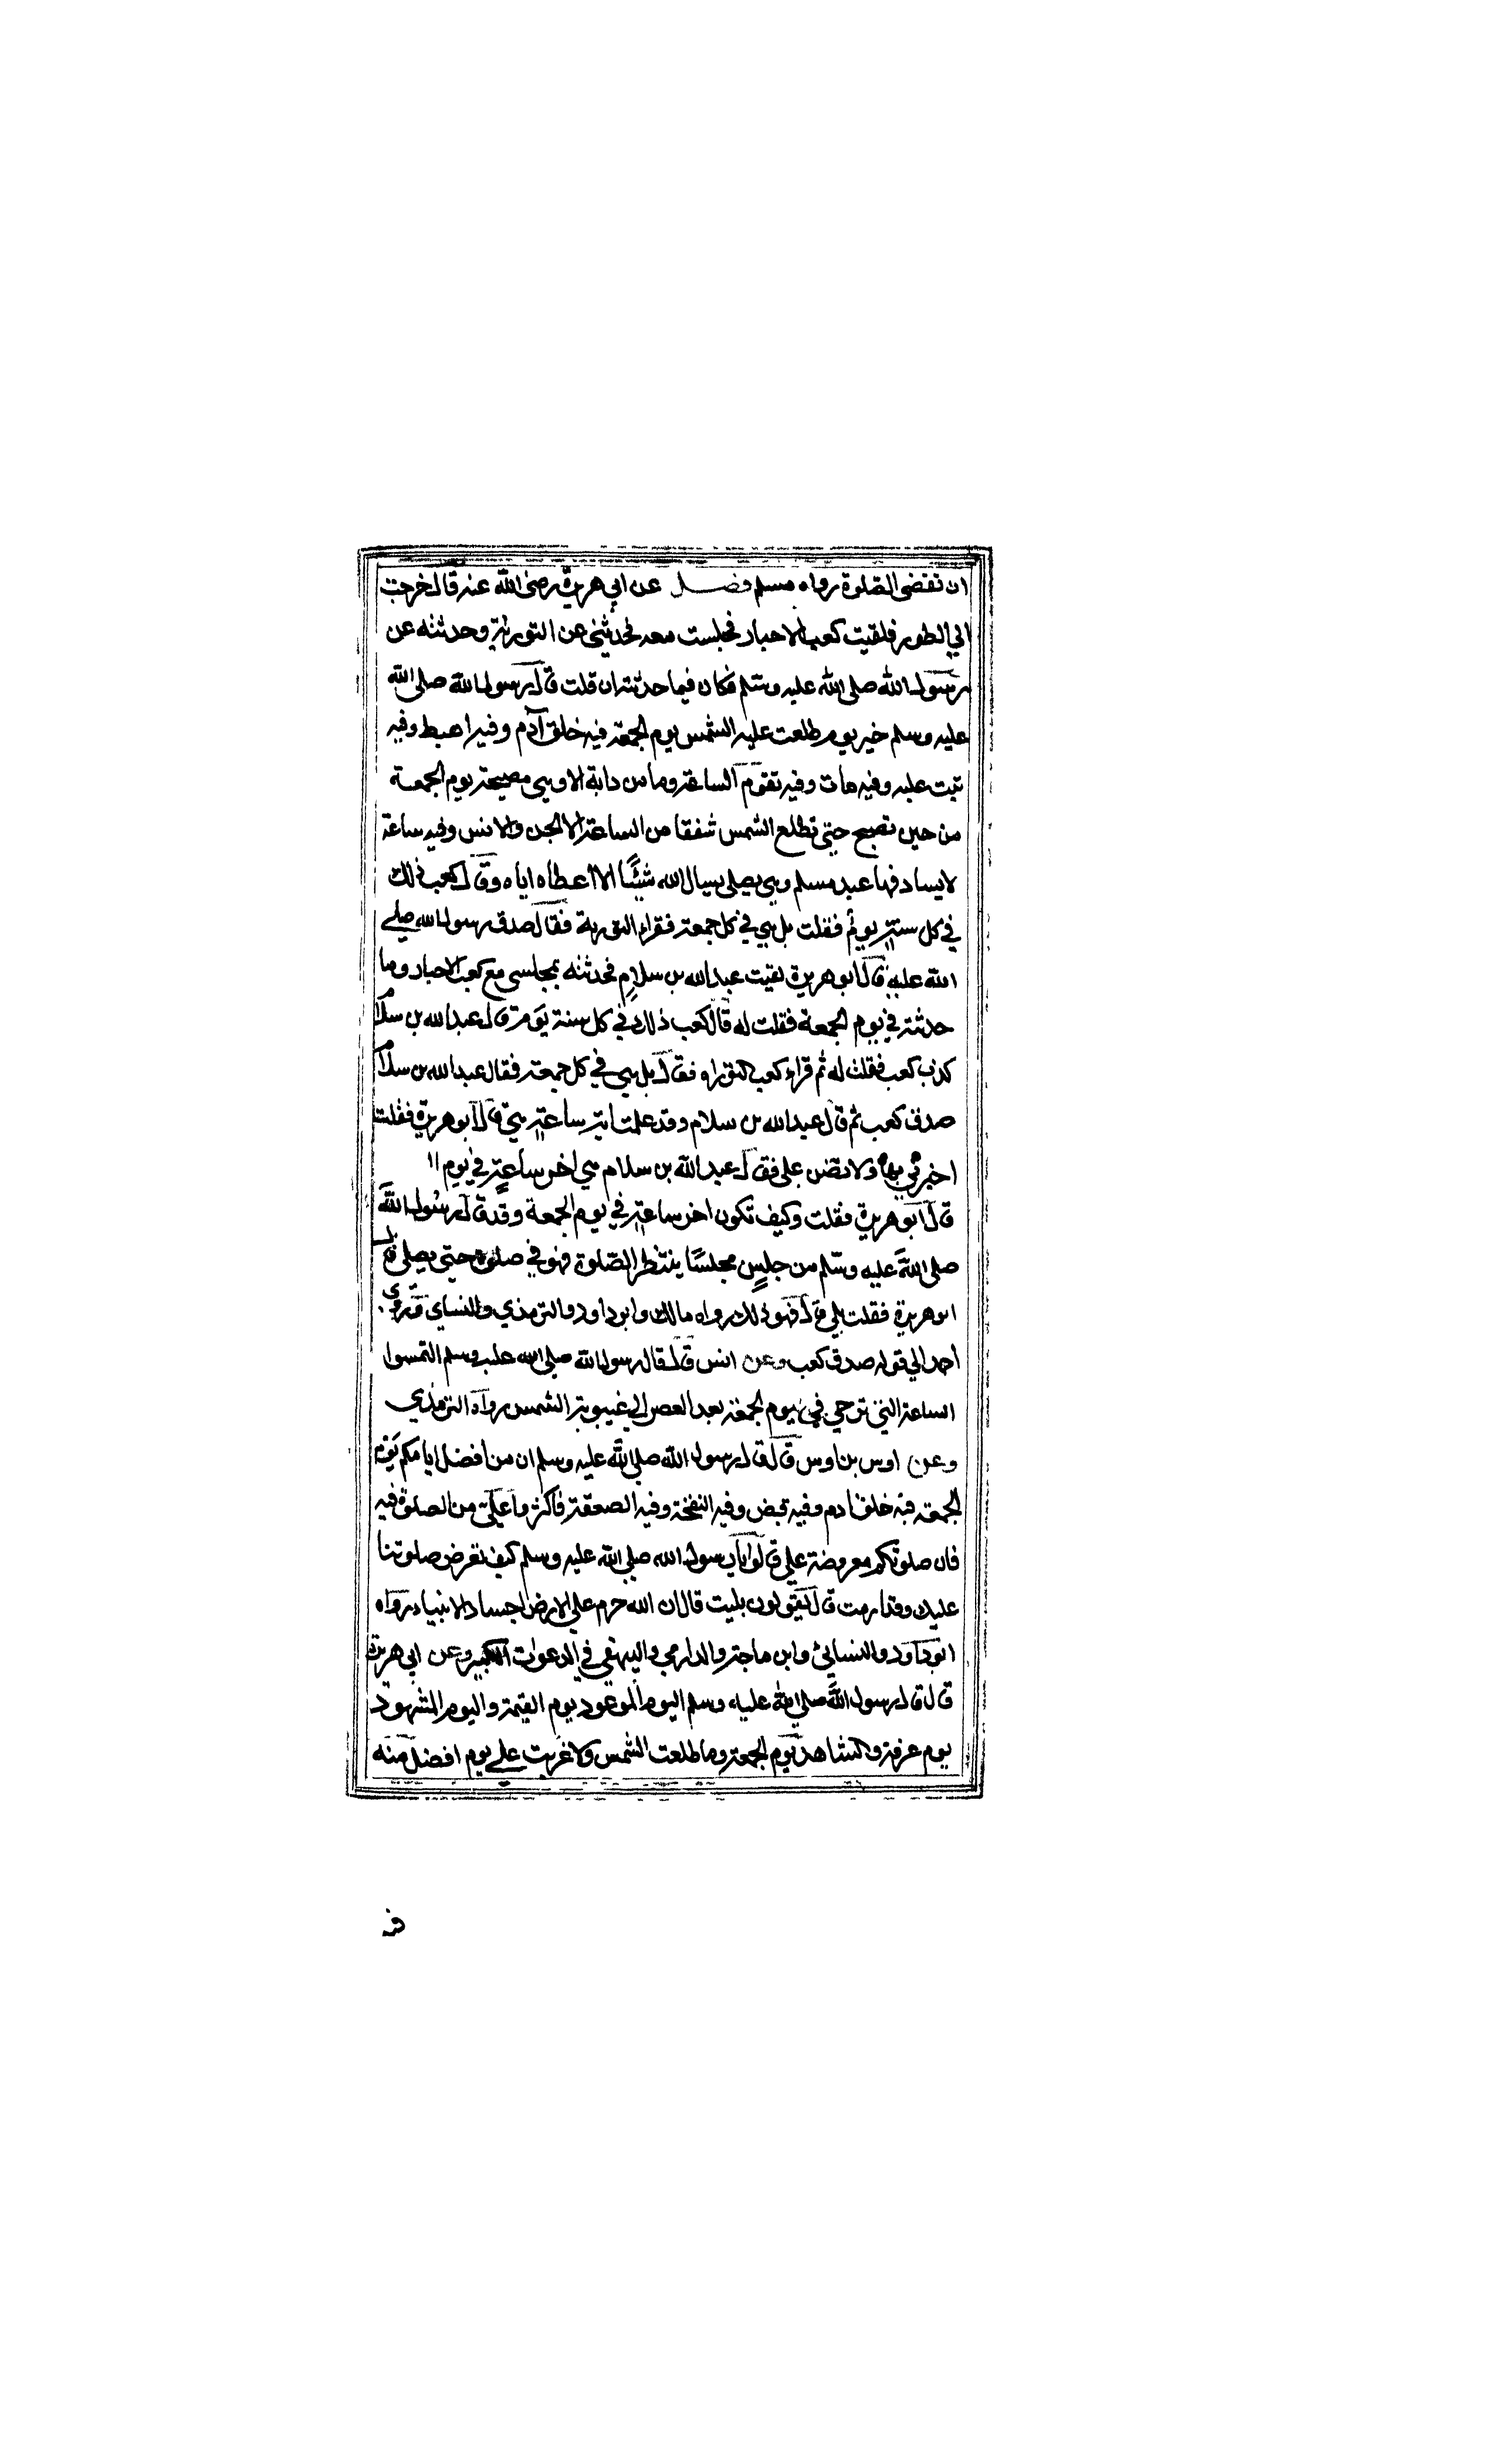 ان تقضى الصلوة رواه مسلم فصل عن ابي هريرة رضى الله عنه قال خرجت
الى الطور فلقيت كعب الاحبار فجلست معه فحدثني عن التورية وحدثته عن
رسول الله صلى الله عليه وسلم فكان فيما حدثته ان قلت قال رسول الله صلى الله
عليه وسلم خير يوم طلعت عليه الشمس يوم الجمعة فيه خلق آدم وفيه اهبط وفيه
تيب عليه وفيه مات وفيه تقوم الساعة وما من دابة الا وهي مصيحة يوم الجمعة
من حين تصبح حتى تطلع الشمس شفقا من الساعة الا الجن والانس وفيه ساعة
لا يصادفها عبد مسلم وهي يصلى يسال الله شيئًا الا أعطاه اياه وقال كعب ذلك
في كل سنة يوم فقلت بل هي في كل جمعة فقراء التورية فقال صدق رسول الله صلى
الله عليه قال ابو هريرة لقيت عبد الله بن سلام فحدثته بمجلسى مع كعب الاحبار وما
حدثته في يوم الجمعة فقلت له قال كعب ذلك في كل سنة يوم قال عبد الله بن سلام
كذب كعب فقلت له ثم قراء كعب التوراه فقال بل هي في كل جمعة فقال عبد الله بن سلام
صدق كعب ثم قال عبد الله بن سلام وقد علمت اية ساعة هي قال ابو هريرة فقلت
اخبرني بها ولا تضن على فقال عبد الله بن سلام هي اخر ساعة في يوم
قال ابو هريرة فقلت وكيف تكون اخر ساعة في يوم الجمعة وقد قال رسول الله
صلى الله عليه وسلم من جلس مجلسًا ينتظر الصلوة فهو في صلوة حتى يصلى قال
ابو هريرة فقلت بلى قال فهو ذلك رواه مالك وابو داود والترمذي والنساى وروى
احمد الى قوله صدق كعب وعن انس قال قال رسول الله صلى الله عليه وسلم التمسوا
الساعة التي ترجى في يوم الجمعة بعد العصر الى غيبوبة الشمس رواه الترمذي
وعن اوس بن اوس قال قال رسول الله صلى الله عليه وسلم ان من افضل ايامكم يوم
الجمعة فيه خلق ادم وفيه قبض وفيه النفخة وفيه الصعقة فاكثروا على من الصلوة فيه
فان صلوتكم معروضة على قالوا يا رسول الله صلى الله عليه وسلم كيف تعرض صلوتنا
عليك وقد ارمت قال يقولون بليت قال ان الله حرم على الارض اجساد الانبياء رواه
ابو داود والنسائي وابن ماجة والدارمي والبيهقي في الدعوات الكبير وعن ابي هريرة
قال قال رسول الله صلى الله عليه وسلم اليوم الموعود يوم القيمة واليوم المشهود
يوم عرفة والشاهد يوم الجمعة وما طلعت الشمس ولا غربت على يوم افضل منه